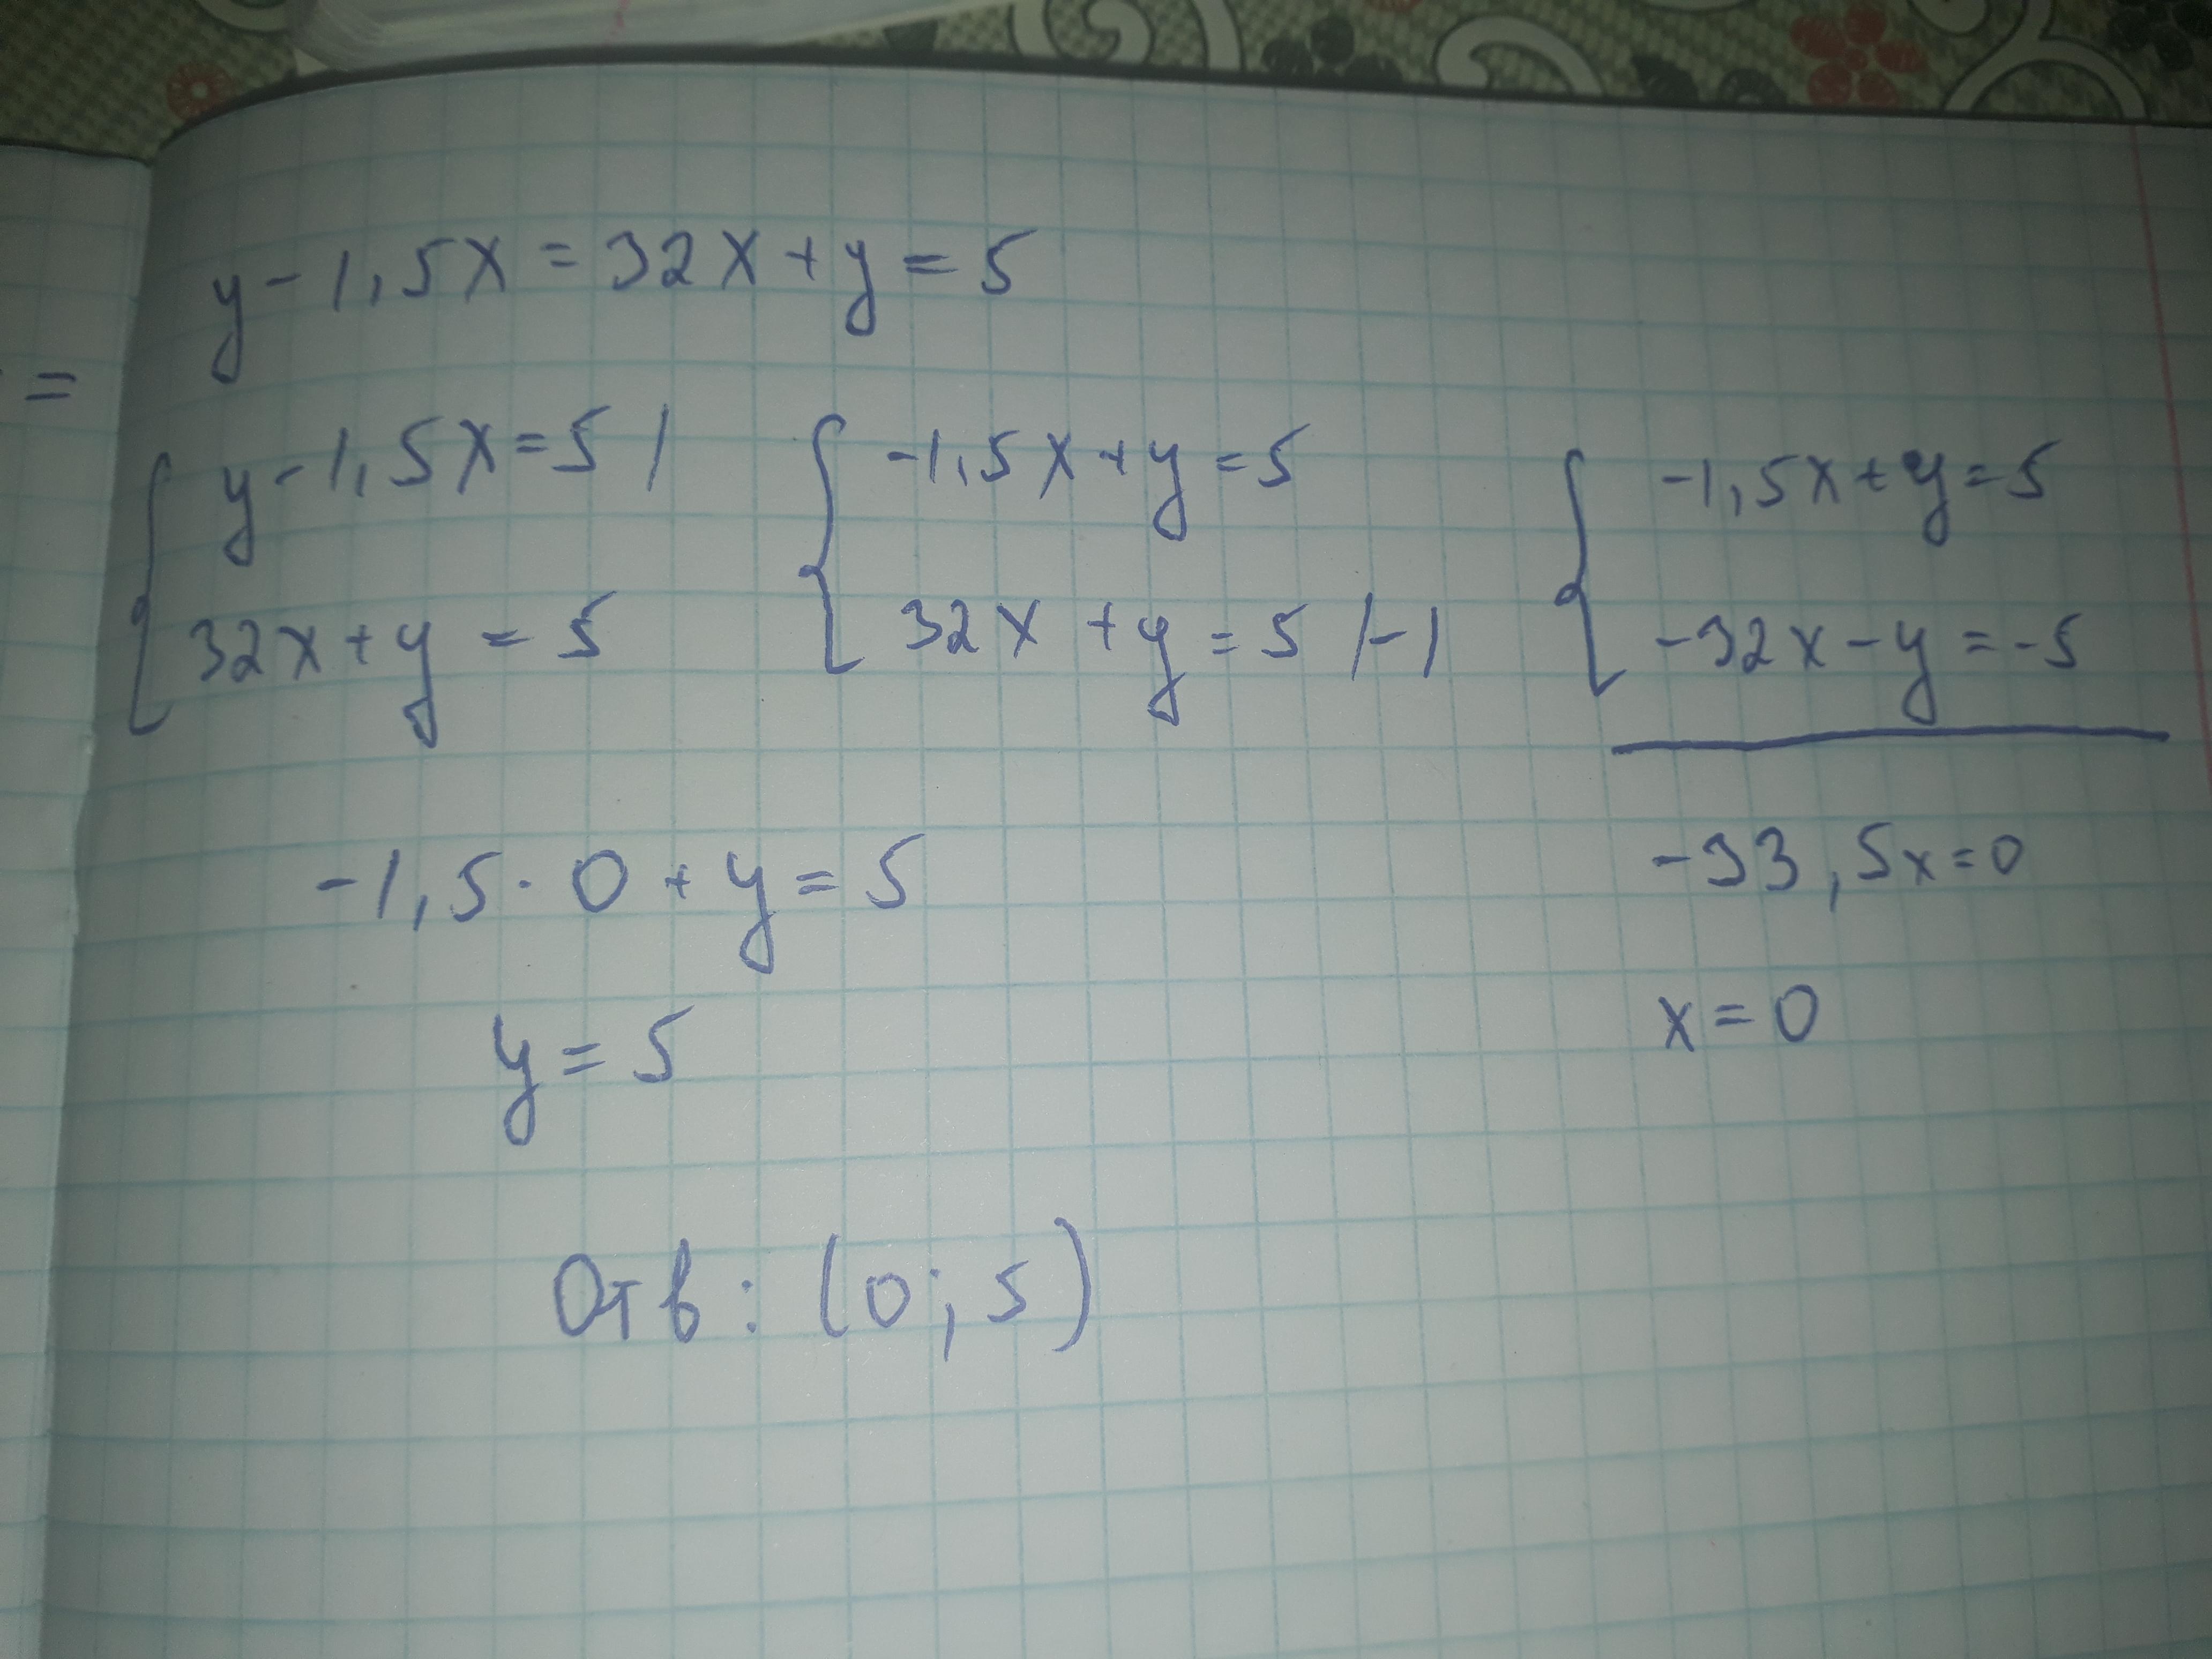 =
y - 1,5x = 32x + y = 5
{ y - 1,5x = 5 |
32x + y = 5
{ -1,5x + y = 5
32x + y = 5 |-1
{ -1,5x + y = 5
-32x - y = -5
-33,5x = 0
x = 0
-1,5 · 0 + y = 5
y = 5
Отв: (0; 5)